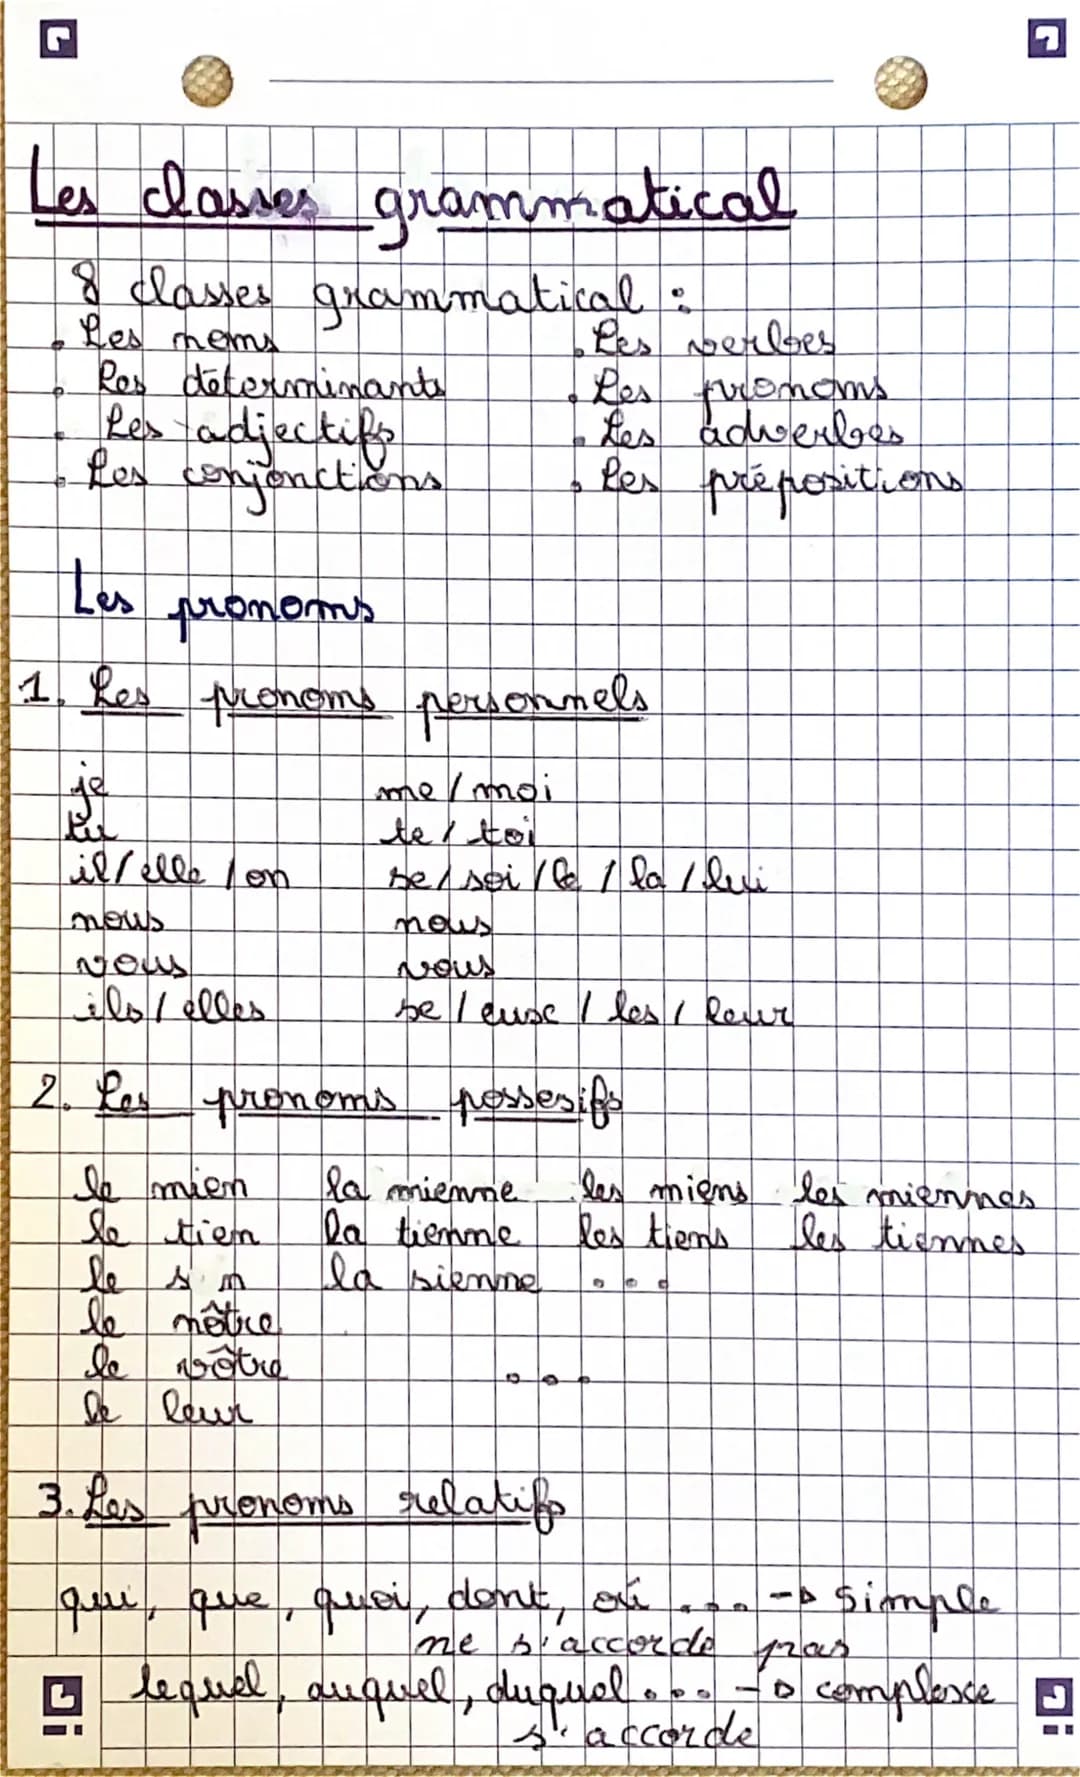 Les classes grammatical
8 classes grammatical :
. Les noms
. Les déterminants
. Les adjectifs
. Les conjonctions
. Les verbes
. Les pronoms
. Les adverbes
. Les prépositions
Les pronoms
1. Les pronoms personnels
je me / moi
tu te / toi
il / elle / on se / soi / le / la / lui
nous nous
vous vous
ils / elles se / eux / les / leur
2. Les pronoms possesifs
le mien la mienne les miens les miennes
le tien la tienne les tiens les tiennes
le la sienne ...
le nôtre
le vôtre ...
le leur
3. Les pronoms relatifs
qui, que, quoi, dont, où ... -> simple
ne s'accorde pas
lequel, auquel, duquel ... -> complexe
s'accorde